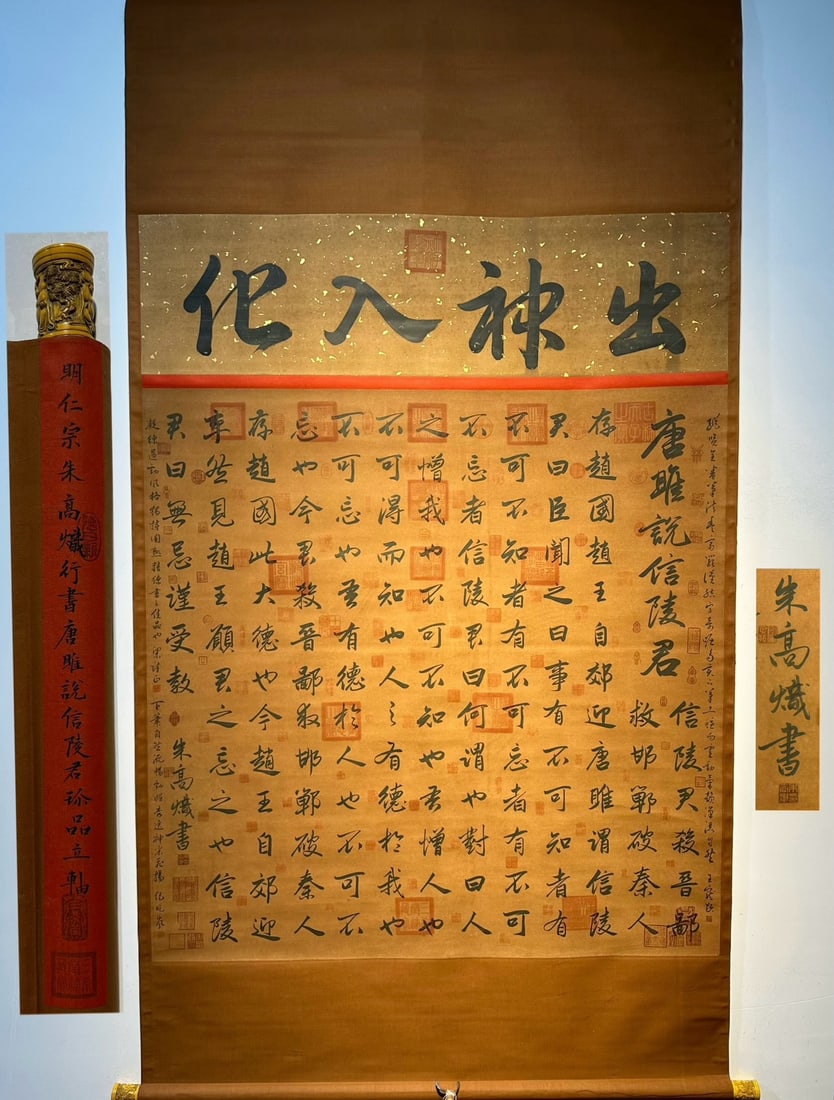 出神入化
唐雎說信陵君
信陵君殺晉鄙
救邯鄲破秦人
存趙國趙王自郊迎唐雎謂信陵
君曰臣聞之曰事有不可知者有
不可不知者有不可忘者有不可
不忘者信陵君曰何謂也對曰人
之憎我也不可不知也吾憎人也
不可得而知也人之有德於我也
不可忘也吾有德於人也不可不
忘也今君殺晉鄙救邯鄲破秦人
存趙國此大德也今趙王自郊迎
卒然見趙王願君之忘之也信陵
君曰無忌謹受教
朱高熾書
明仁宗朱高熾行書唐雎說信陵君珍品立軸
朱高熾書